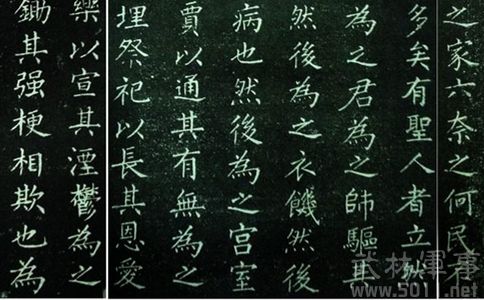 之家六奈之何民不
多矣有聖人者立然
為之君為之師驅其
然後為之衣饑然後
病也然後為之宮室
賈以通其有無為之
埋祭祀以長其恩愛
樂以宣其湮鬱為之
鋤其强梗相欺也為